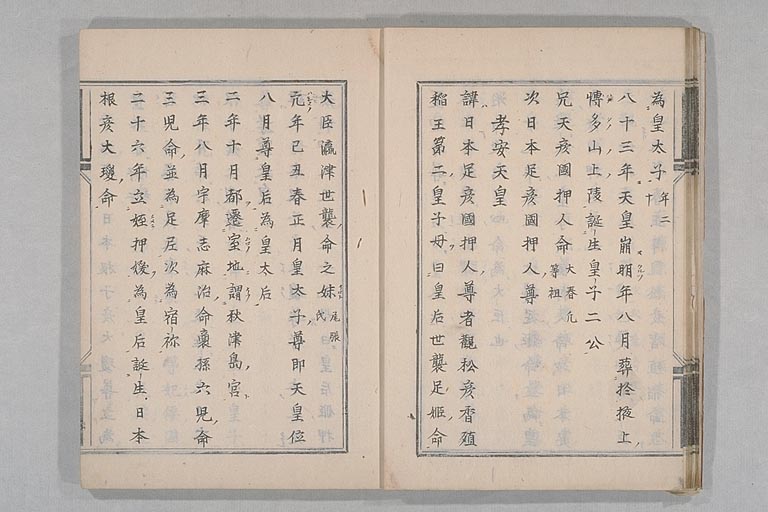 為皇太子年二十
八十三年天皇崩明年八月葬於掖上
博多山上陵誕生皇子二公
兄天彦國押人命大春丸等祖
次日本足彦國押人尊
孝安天皇
諱日本足彦國押人尊者觀松彦香殖
稲王第二皇子母曰皇后世襲足姫命
大臣瀛津世襲命之妹尾張氏
元年己丑春正月皇太子尊即天皇位
八月尊皇后為皇太后
二年十月都遷室地謂秋津島宮
三年八月宇摩志麻治命裏孫六児命
三児命並為足尼次為宿祢
二十六年立姪押媛為皇后誕生日本
根彦大瓊命